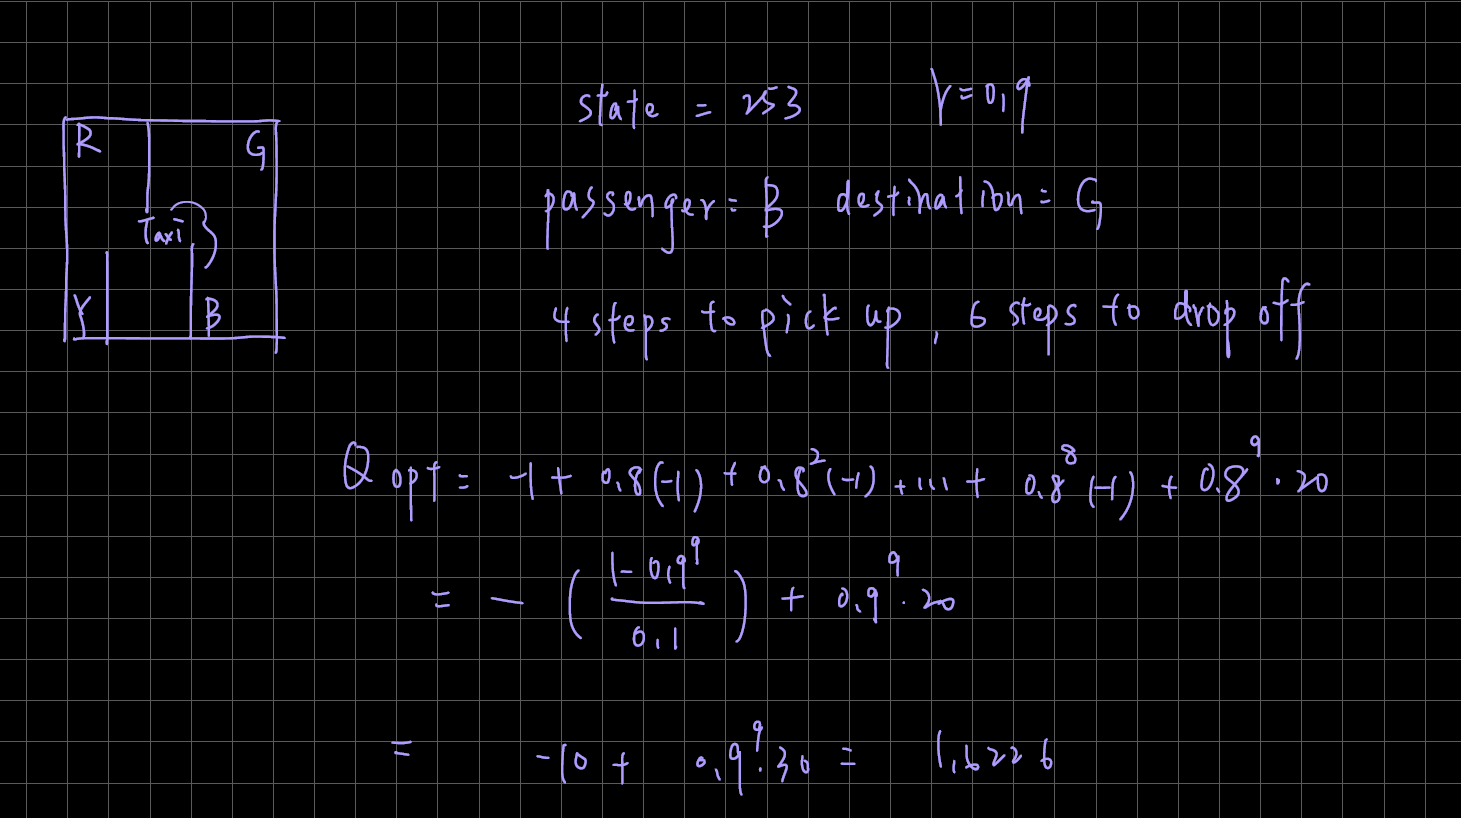 state = 253 γ = 0.9
R G
passenger = B destination = G
Taxi
Y B
4 steps to pick up, 6 steps to drop off
Q opt = -1 + 0.8(-1) + 0.8²(-1) + ... + 0.8⁸(-1) + 0.8⁹ · 20
= - ( (1 - 0.9⁹) / 0.1 ) + 0.9⁹ · 20
= -10 + 0.9⁹ · 30 = 1.6226